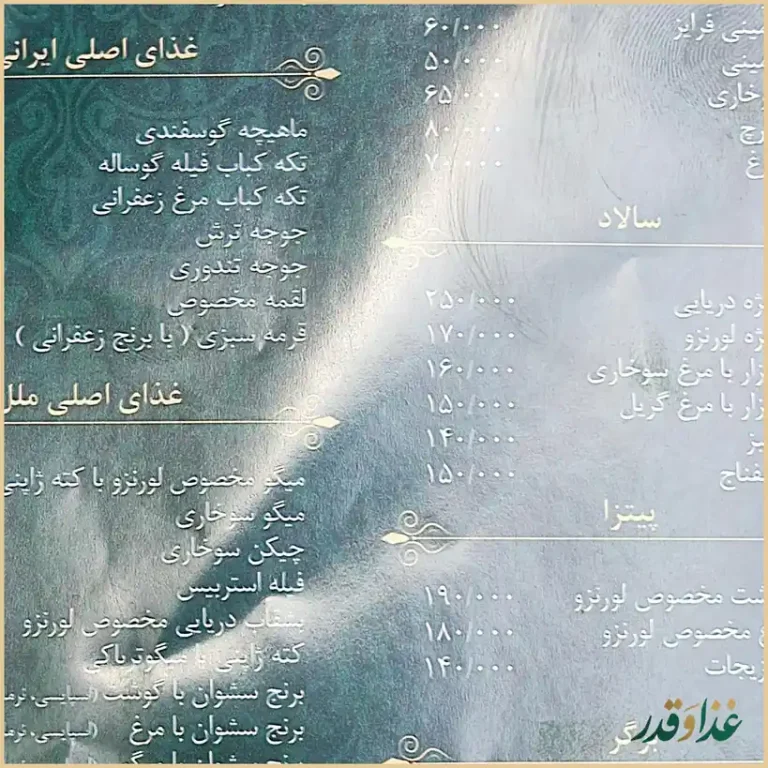 مینی فرایز ۶۰/۰۰۰
مینی ۵۰/۰۰۰
وخاری ۶۵/۰۰۰
رچ ۸۰/۰۰۰
رغ ۷۰/۰۰۰
سالاد
ژه دریایی ۲۵۰/۰۰۰
ژه لورنزو ۱۷۰/۰۰۰
زار با مرغ سوخاری ۱۶۰/۰۰۰
زار با مرغ گریل ۱۵۰/۰۰۰
بز ۱۴۰/۰۰۰
فناج ۱۵۰/۰۰۰
پیتزا
شت مخصوص لورنزو ۱۹۰/۰۰۰
غ مخصوص لورنزو ۱۸۰/۰۰۰
زیجات ۱۴۰/۰۰۰
برگر
غذای اصلی ایرانی
ماهیچه گوسفندی
تکه کباب فیله گوساله
تکه کباب مرغ زعفرانی
جوجه ترش
جوجه تندوری
لقمه مخصوص
قرمه سبزی ( با برنج زعفرانی )
غذای اصلی ملل
میگو مخصوص لورنزو با کته ژاپنی
میگو سوخاری
چیکن سوخاری
فیله استریپس
بشقاب دریایی مخصوص لورنزو
کته ژاپنی با میگو
برنج سشوان با گوشت
برنج سشوان با مرغ
برنج سشوان با میگو
غذا و قدر